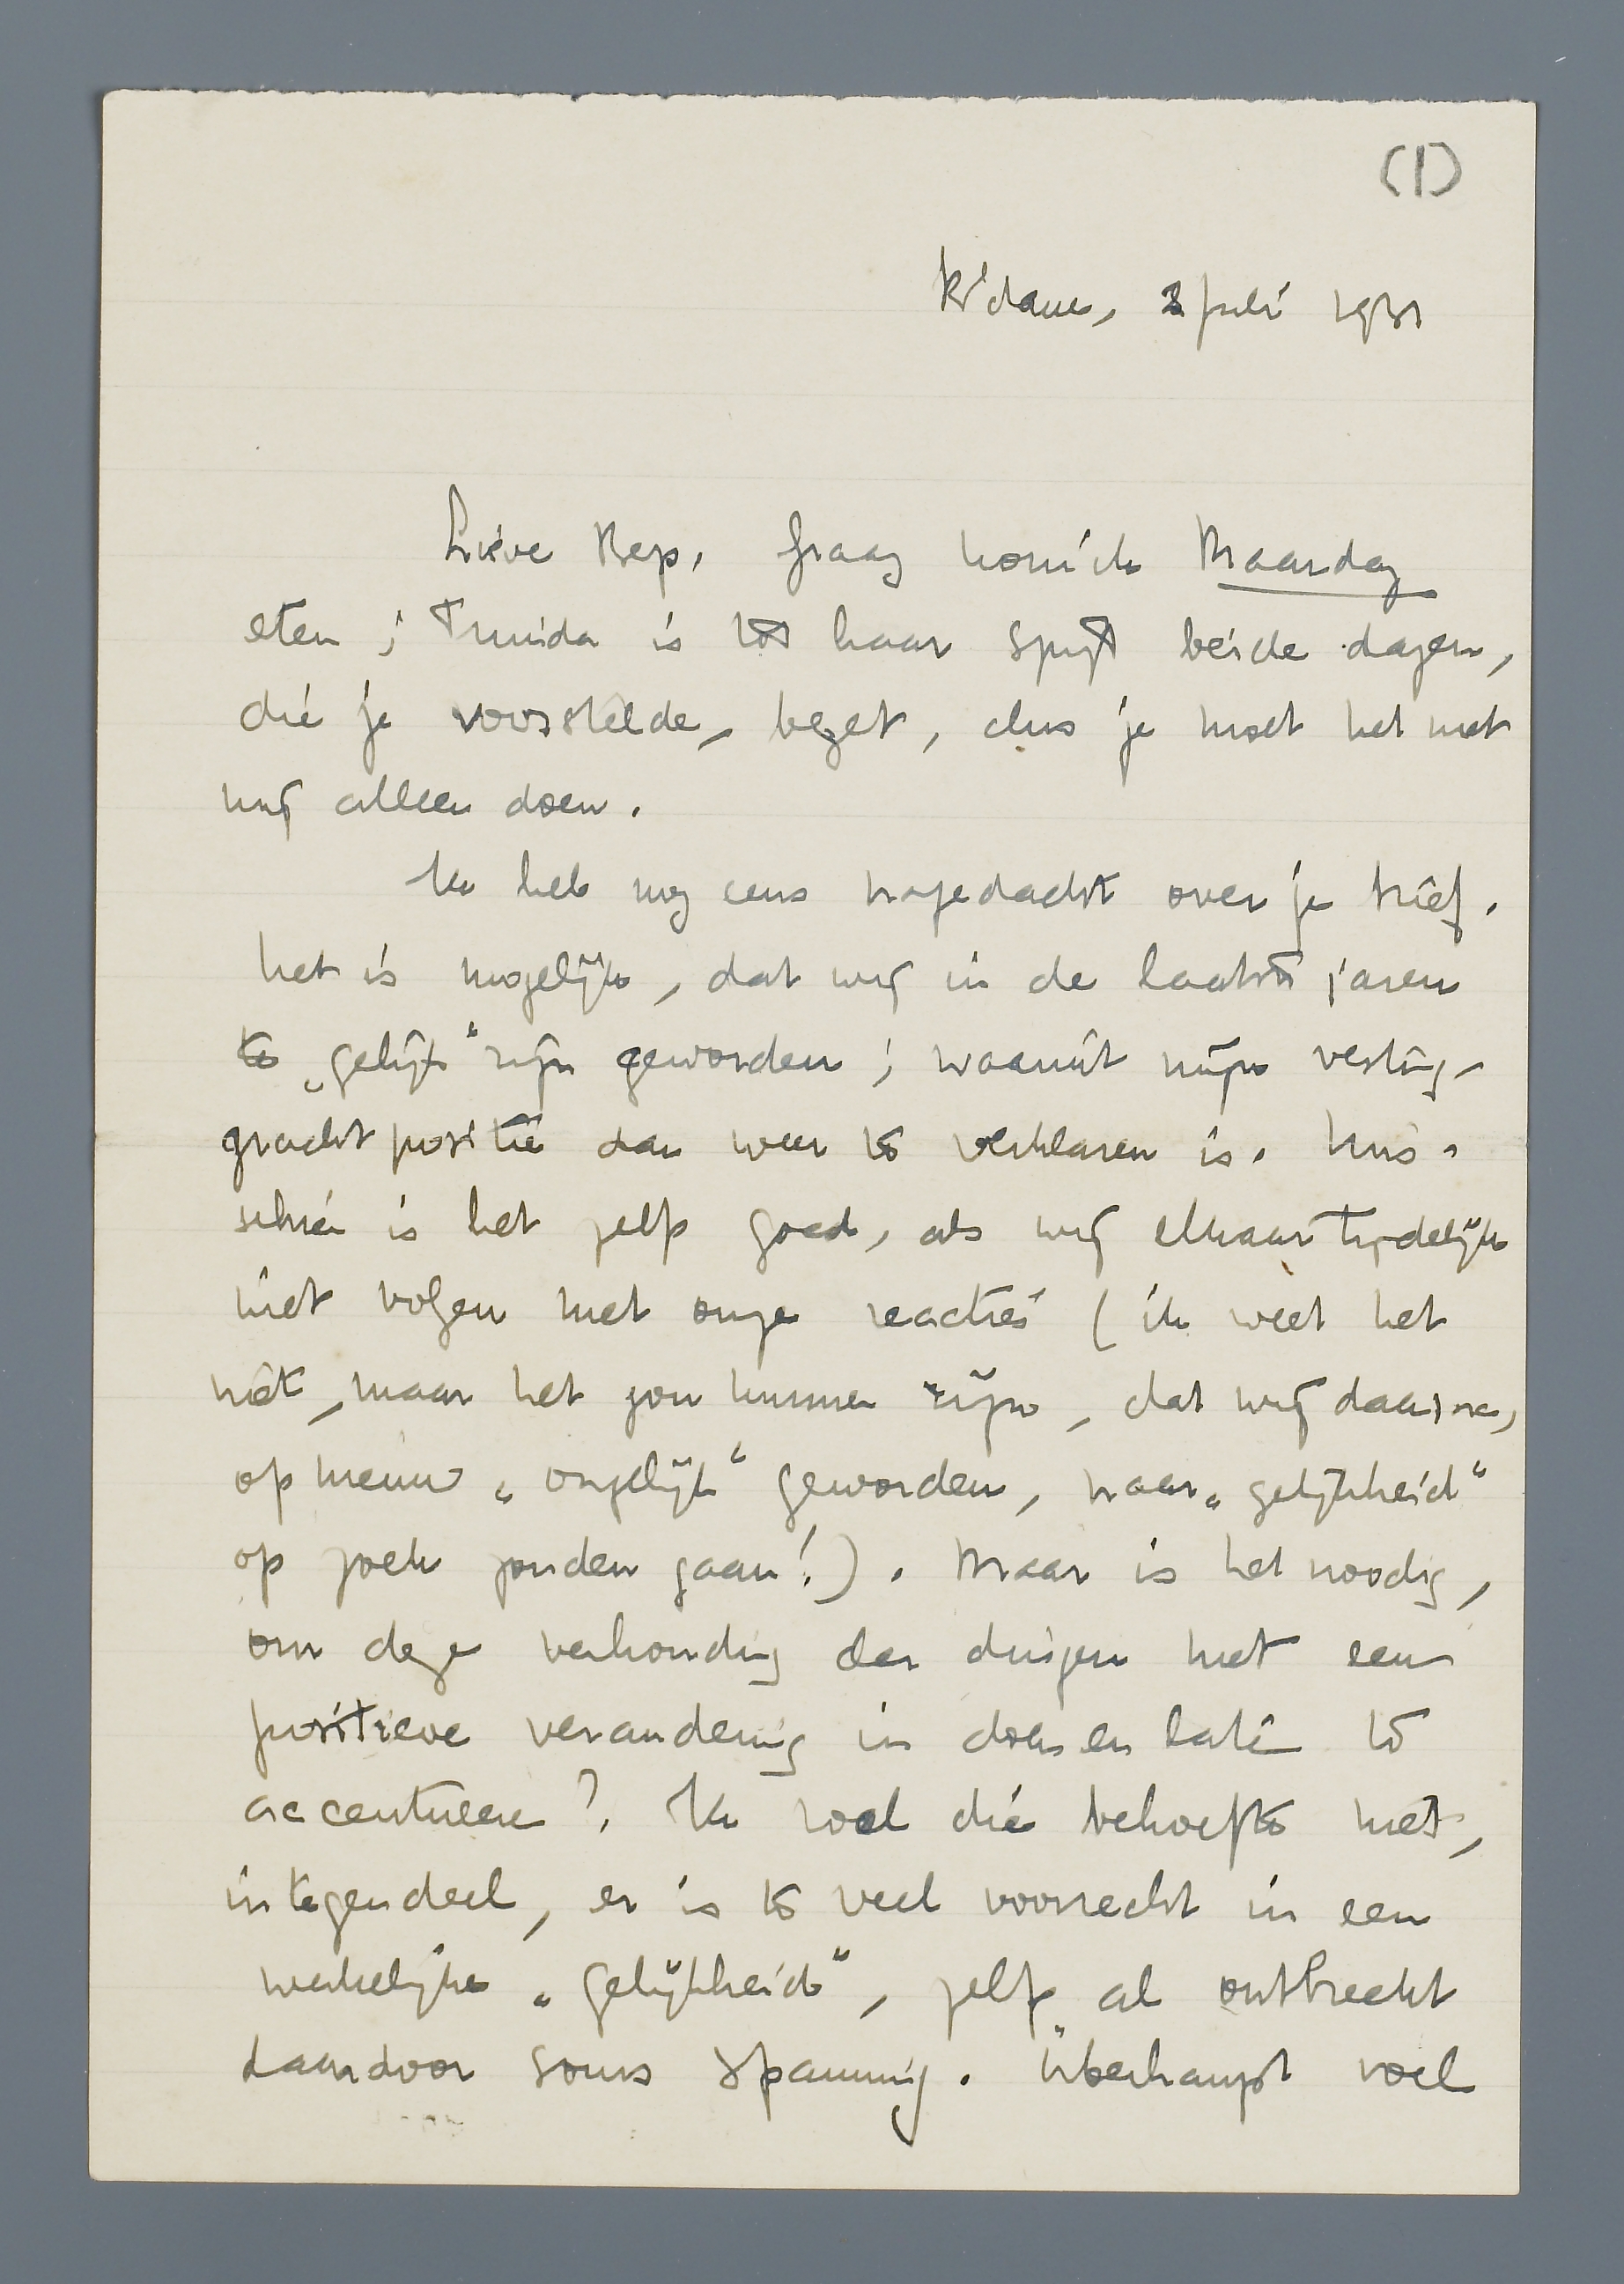 (1)
R'dam, 2 Juli 1931
Lieve Bep. Graag kom ik Maandag
eten; Truida is tot haar spijt beide dagen,
die je voorstelde, bezet, dus je moet het met
mij alleen doen.
Ik heb nog eens nagedacht over je brief.
Het is mogelijk, dat wij in de laatste jaren
te „gelijk” zijn geworden; waaruit mijn vesting-
gracht positie dan weer te verklaren is. Mis-
schien is het zelfs goed, als wij elkaar tijdelijk
niet volgen met onze reacties (ik weet het
niet, maar het zou kunnen zijn, dat wij daarna,
opnieuw „ongelijk” geworden, naar „gelijkheid”
op zoek zouden gaan!). Maar is het noodig,
om deze verhouding der dingen met een
positieve verandering in doen en laten te
accentueeren? Ik voel die behoefte niet,
integendeel, er is te veel voorrecht in een
werkelijke „gelijkheid”, zelfs al ontbreekt
daardoor soms spanning. Überhaupt voel